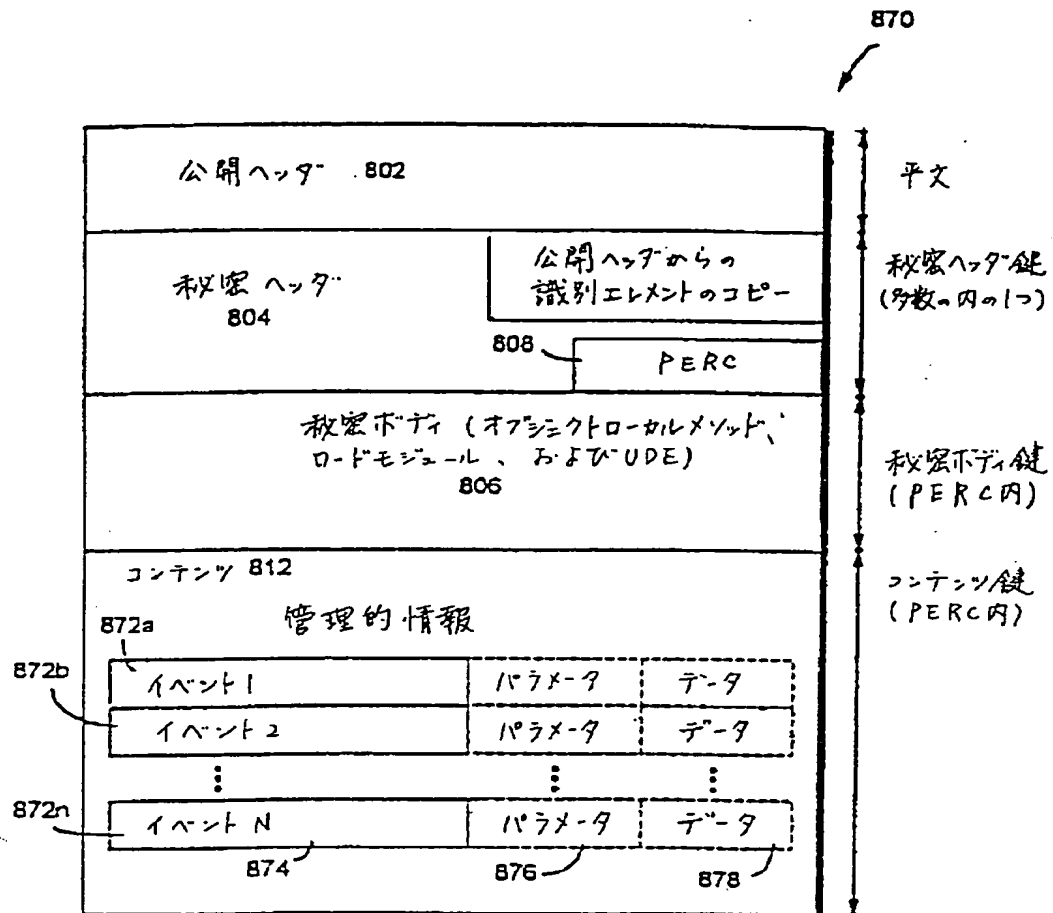 870
公開ヘッダ 802
平文
秘密ヘッダ
804
公開ヘッダからの
識別エレメントのコピー
808
PERC
秘密ヘッダ鍵
(多数の内の1つ)
秘密ボディ (オブジェクトローカルメソッド、
ロードモジュール、およびUDE)
806
秘密ボディ鍵
(PERC内)
コンテンツ 812
管理的情報
コンテンツ鍵
(PERC内)
872a
872b
イベント1 パラメータ データ
イベント2 パラメータ データ
872n
イベントN パラメータ データ
874 876 878